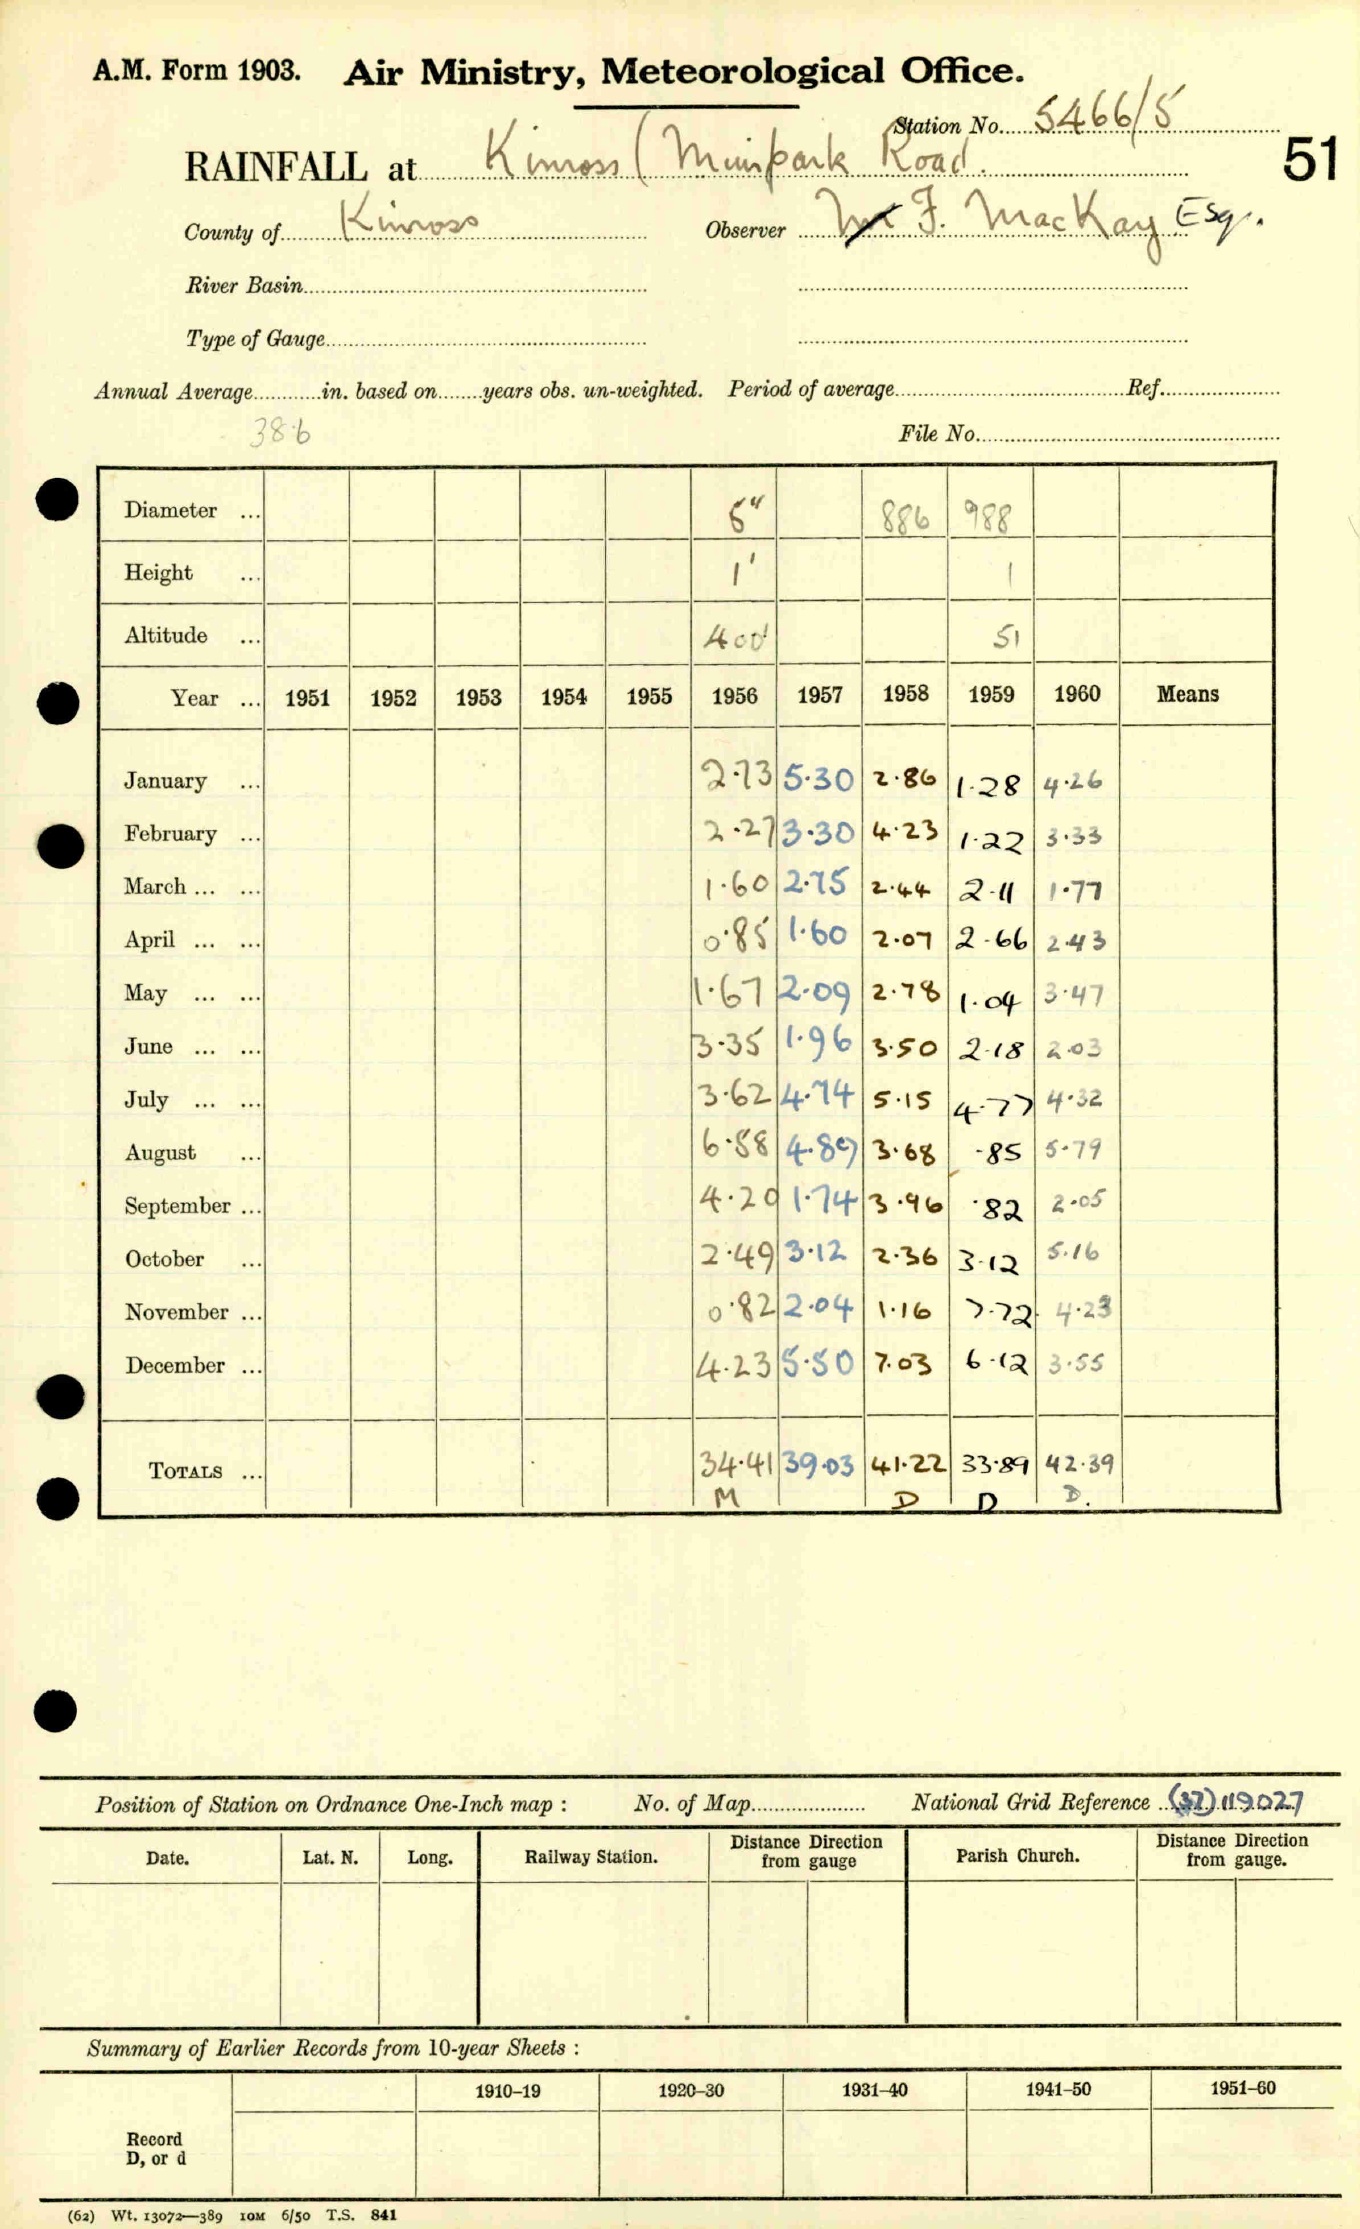 A.M. Form 1903. Air Ministry, Meteorological Office.
Station No. 5466/5
RAINFALL at Kinross (Muirpark Road. 51
County of Kinross Observer Mr F. MacKay Esq.
River Basin
Type of Gauge
Annual Average in. based on years obs. un-weighted. Period of average Ref.
386
File No.
Diameter ... 5" 886 988
Height ... 1' 1
Altitude ... 400' 51
Year ... 1951 1952 1953 1954 1955 1956 1957 1958 1959 1960 Means
January ... 2.73 5.30 2.86 1.28 4.26
February ... 2.27 3.30 4.23 1.22 3.33
March ... ... 1.60 2.75 2.44 2.11 1.77
April ... ... 0.85 1.60 2.07 2.66 2.43
May ... ... 1.67 2.09 2.78 1.04 3.47
June ... ... 3.35 1.96 3.50 2.18 2.03
July ... ... 3.62 4.74 5.15 4.77 4.32
August ... 6.58 4.89 3.68 .85 5.79
September ... 4.20 1.74 3.96 .82 2.05
October ... 2.49 3.12 2.36 3.12 5.16
November ... 0.82 2.04 1.16 7.72 4.23
December ... 4.23 5.50 7.03 6.12 3.55
TOTALS ... 34.41 39.03 41.22 33.89 42.39
M D D D.
Position of Station on Ordnance One-Inch map : No. of Map National Grid Reference (37) 119027
Date. Lat. N. Long. Railway Station. Distance Direction from gauge Parish Church. Distance Direction from gauge.
Summary of Earlier Records from 10-year Sheets :
1910–19 1920–30 1931–40 1941–50 1951–60
Record
D, or d
(62) Wt. 13072—389 10M 6/50 T.S. 841